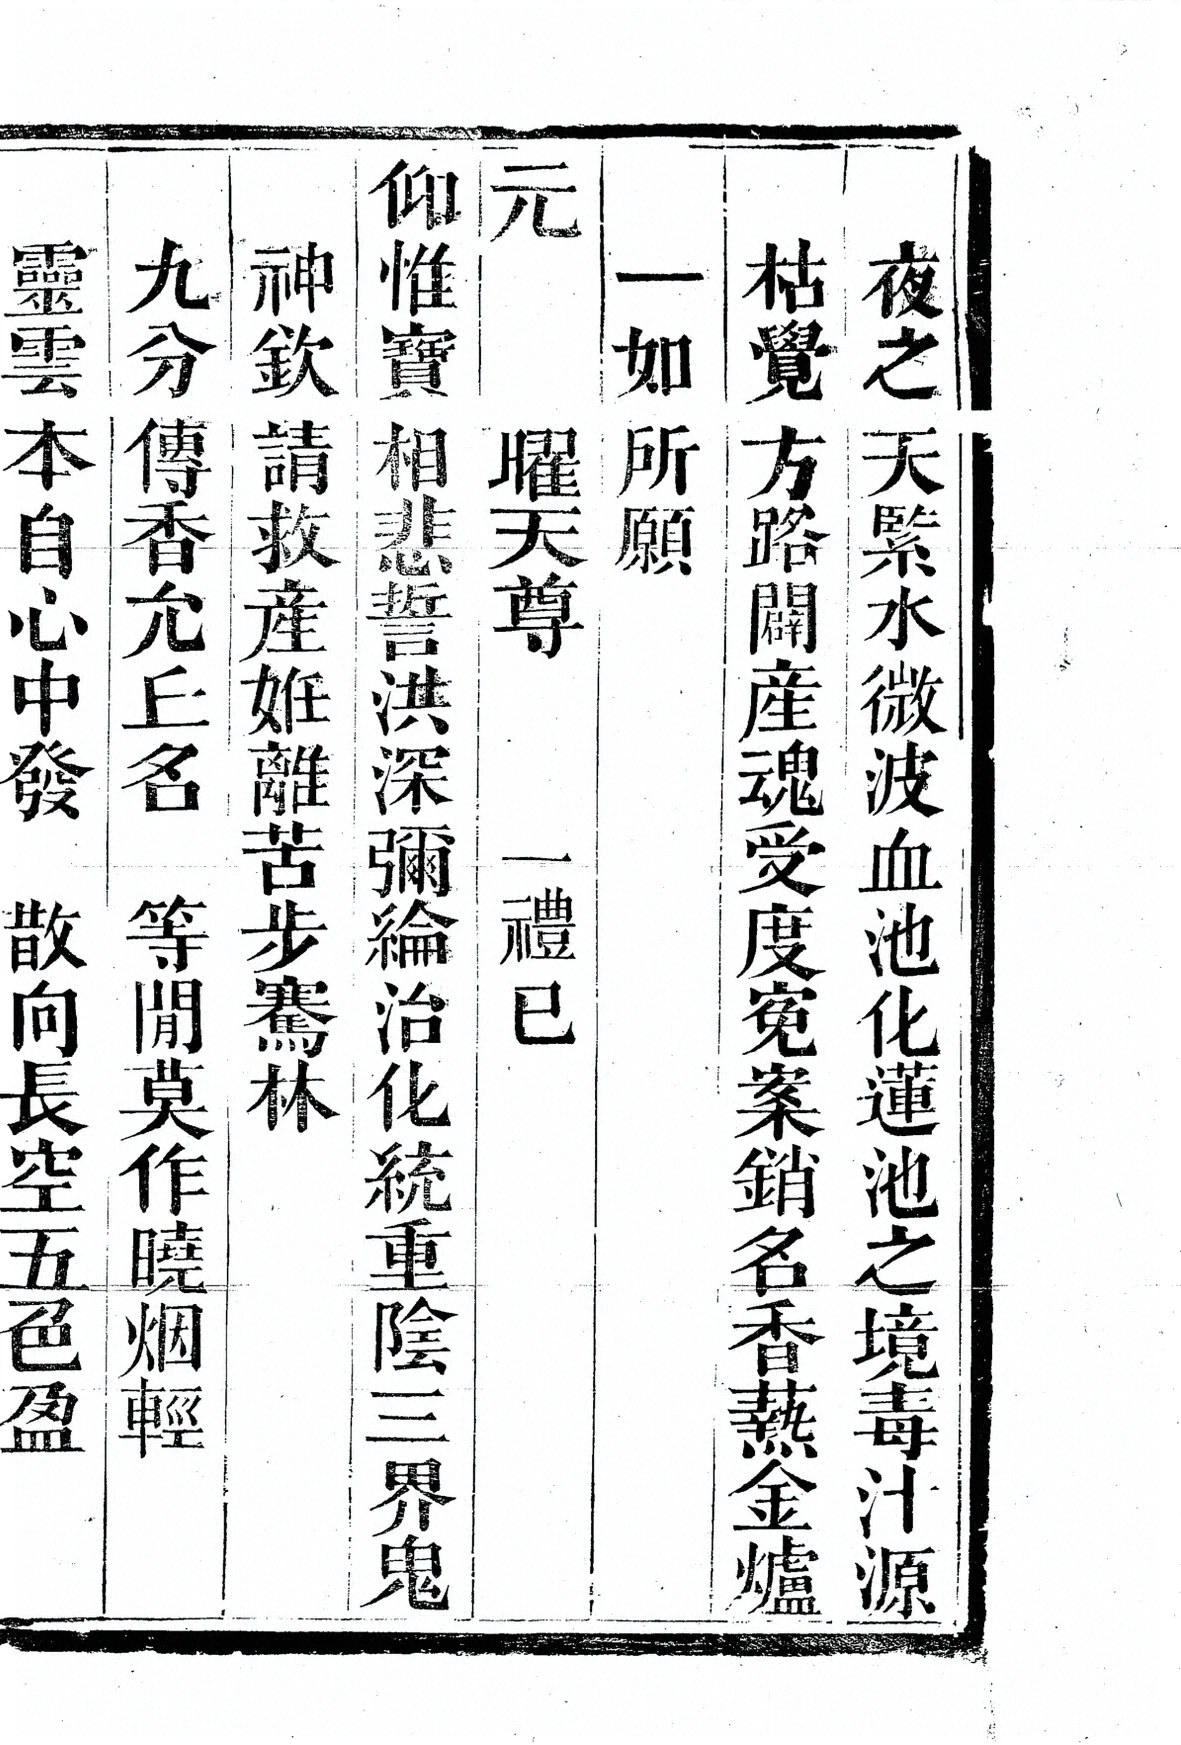 夜之天翳水微波血池化蓮池之境毒汁源
枯覺方路闢産魂受度寃案銷名香爇金爐
一如所願
元　曜天尊　一禮已
仰惟寶相悲誓洪深彌綸治化統重陰三界鬼
神欽請救産姙離苦步騫林
九分傳香允丘名　等閒莫作曉烟輕
靈雲本自心中發　散向長空五色盈